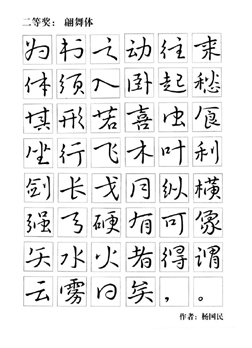 二等奖： 翩舞体
为书之动往来
体须入卧起愁
其形若喜虫食
坐行飞木叶利
剑长戈月纵横
强弓硬有可像
矢水火者得谓
云雾日矣，。
作者：杨国民